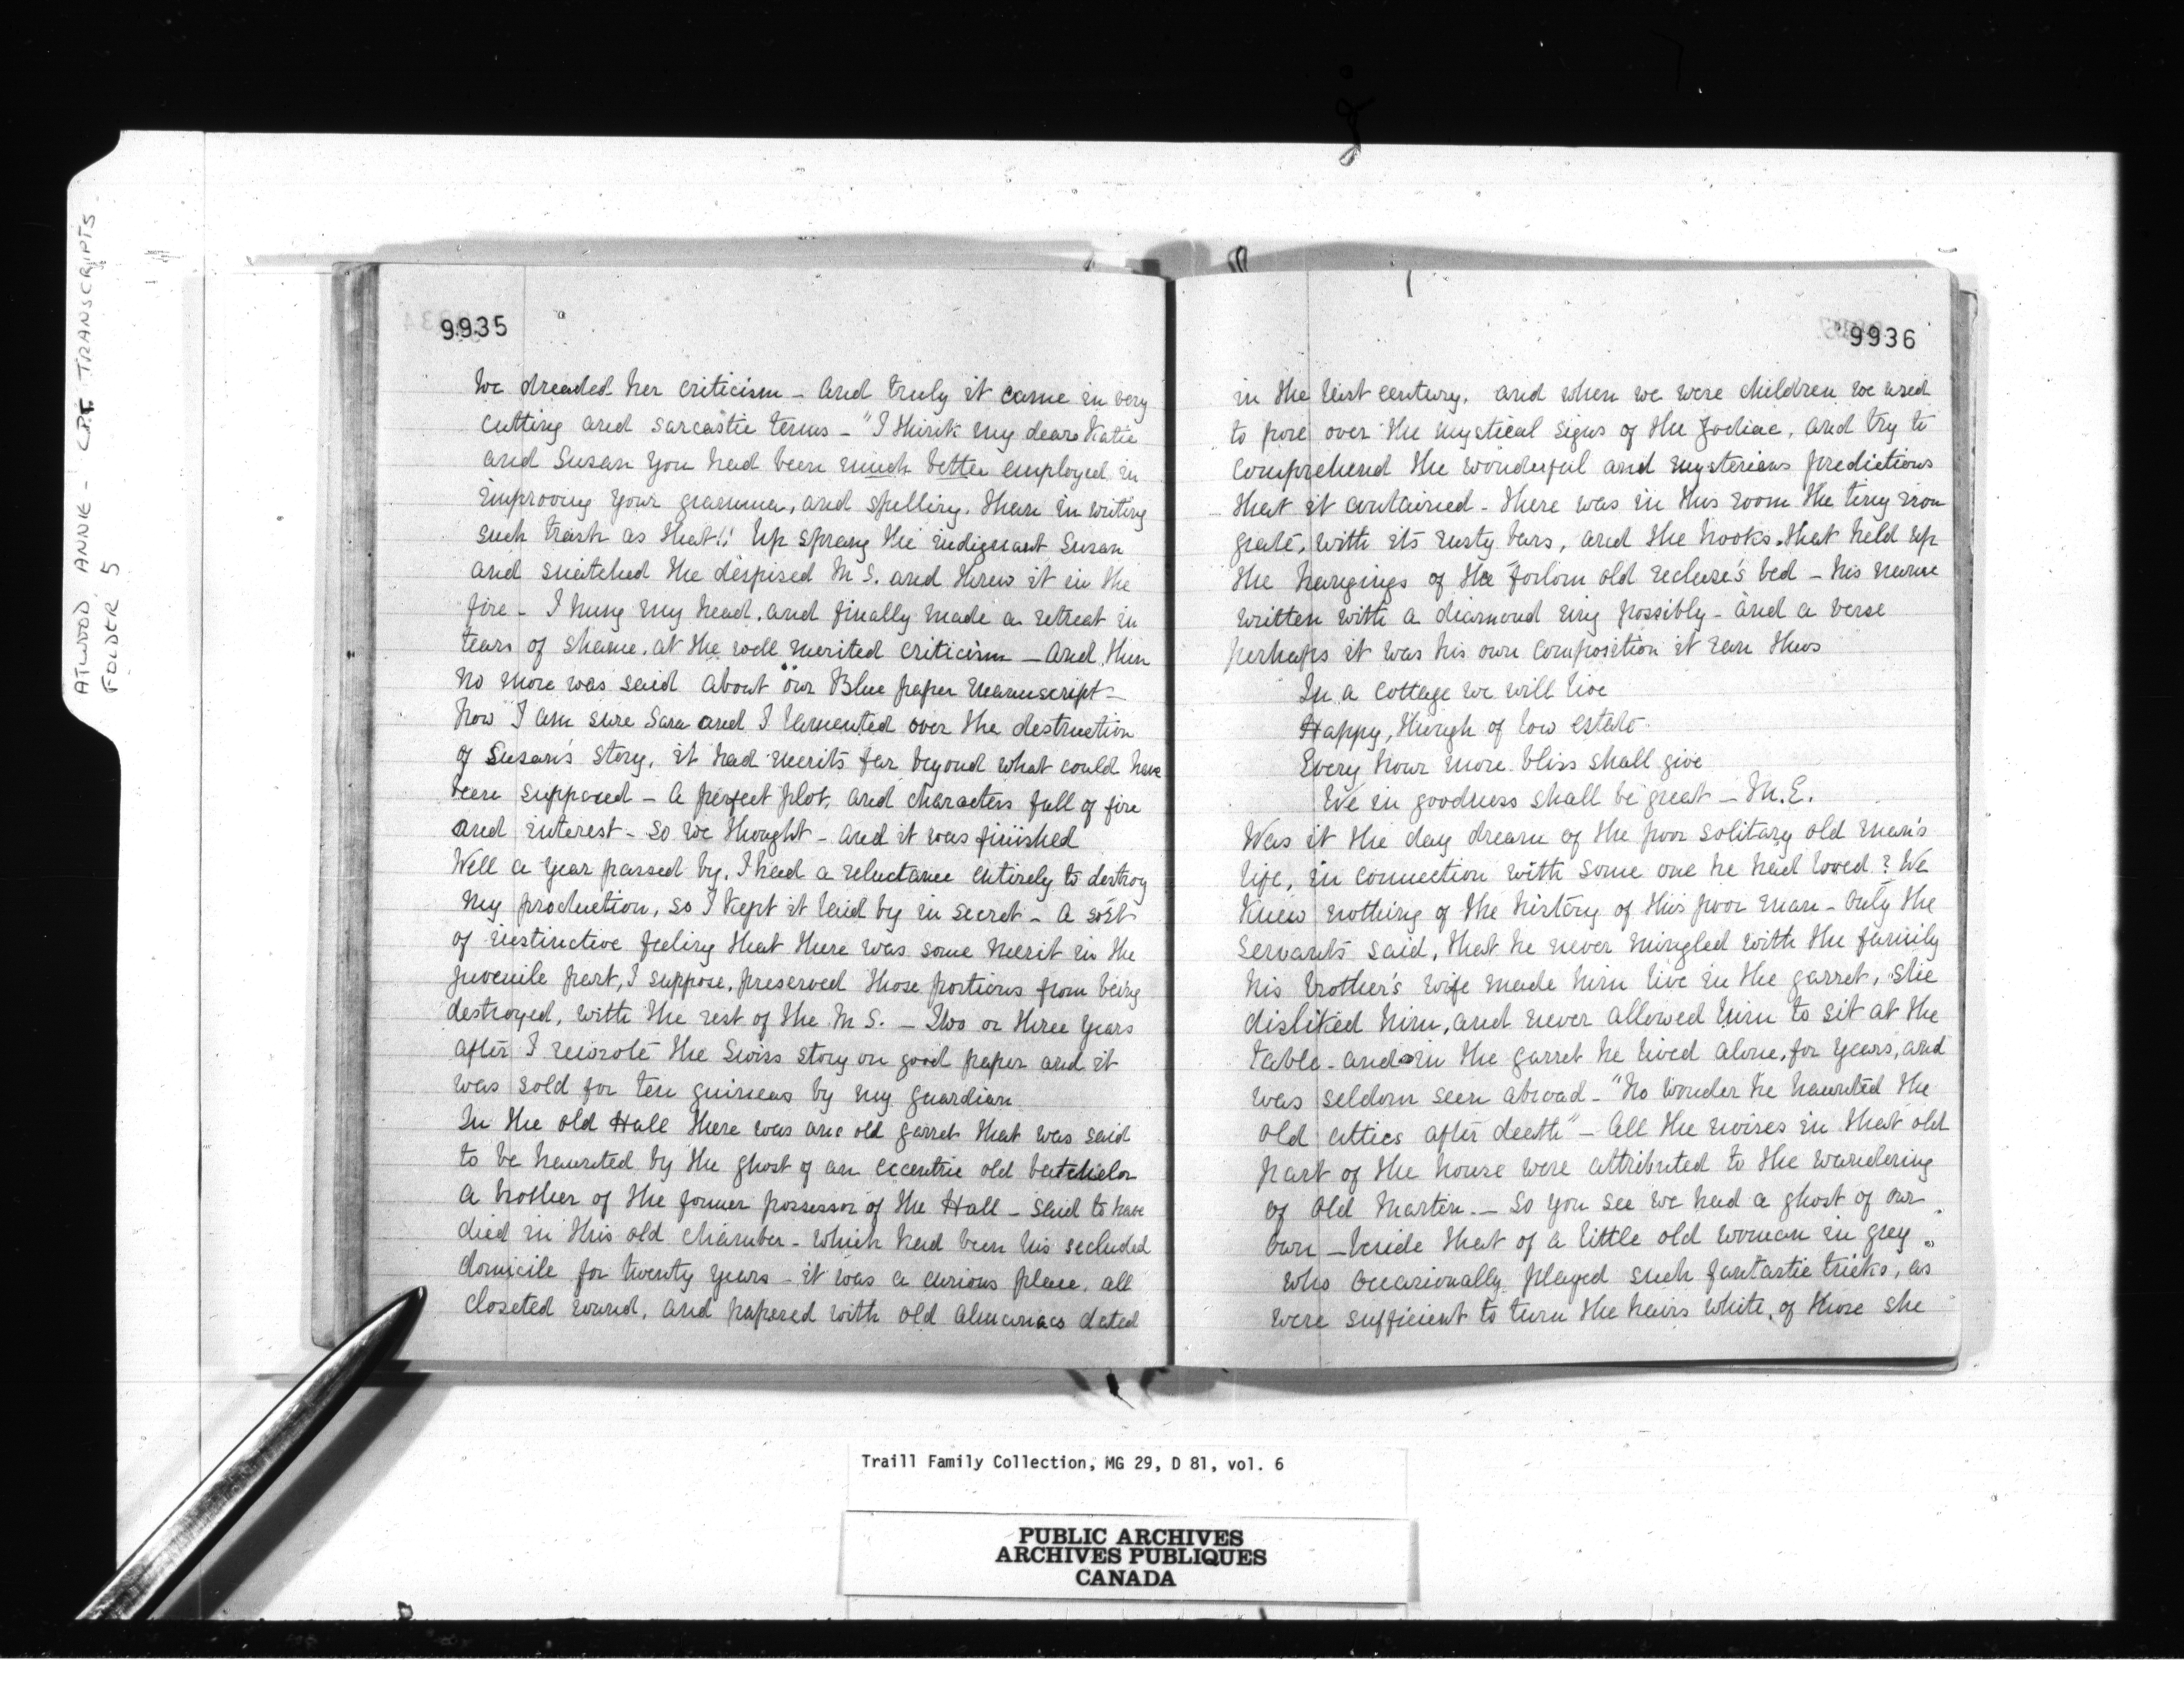 ATWOOD, ANNIE - C.P.T. TRANSCRIPTS
FOLDER 5
9935
We dreaded her criticism - and truly it came in very
cutting and sarcastic terms - "I think my dears Katie
and Susan you had been much better employed in
improving your grammer, and spelling. than in writing
such trash as that!! Up sprang the indignant Susan
and snatched the despised M S. and threw it in the
fire - I hung my head, and finally made a retreat in
tears of shame, at the well merited criticism - and then
no more was said about our Blue paper manuscript -
Now I am sure Sara and I lamented over the destruction
of Susan's story, it had merits far beyond what could have
been supposed - a perfect plot, and characters full of fire
and interest - so we thought - and it was finished
Well a year passed by, I had a reluctance entirely to destroy
my production, so I kept it laid by in secret - a sort
of instinctive feeling that there was some merit in the
juvenile part, I suppose, preserved those portions from being
destroyed, with the rest of the M S. - Two or three years
after I rewrote the Swiss story on good paper and it
was sold for ten guineas by my guardian
In the old Hall there was an old garret that was said
to be haunted by the ghost of an eccentric old batchelor
a brother of the former possessor of the Hall - said to have
died in this old chamber - which had been his secluded
domicile for twenty years - it was a curious place, all
closeted round, and papered with old almanacs dated
9936
in the last century, and when we were children we used
to pore over the mystical signs of the Zodiac, and try to
comprehend the wonderful and mysterious predictions
that it contained - there was in this room the tiny iron
grate, with its rusty bars, and the hooks that held up
the hangings of the forlorn old recluse's bed - his name
written with a diamond ring possibly - and a verse
perhaps it was his own composition it ran thus
In a cottage we will live
Happy, though of low estate
Every hour more bliss shall give
We in goodness shall be great - M.E.
Was it the day dream of the poor solitary old man's
life, in connection with some one he had loved? We
knew nothing of the history of this poor man - Only the
servants said, that he never mingled with the family
his brother's wife made him live in the garret, she
disliked him, and never allowed him to sit at the
table - and in the garret he lived alone, for years, and
was seldom seen abroad - "No wonder he haunted the
old attics after death" - All the noises in that old
part of the house were attributed to the wandering
of Old Martin. - So you see we had a ghost of our
own - beside that of a little old woman in grey
who occasionally played such fantastic tricks, as
were sufficient to turn the hairs white, of those she
Traill Family Collection, MG 29, D 81, vol. 6
PUBLIC ARCHIVES
ARCHIVES PUBLIQUES
CANADA